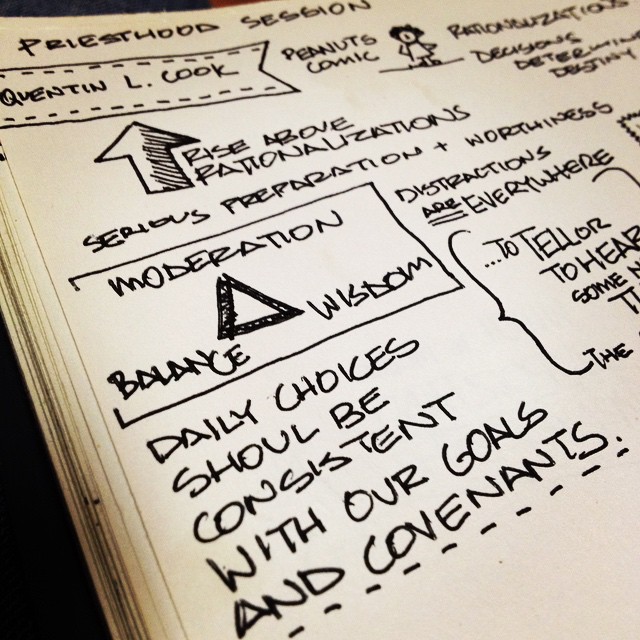 PRIESTHOOD SESSION
QUENTIN L. COOK
PEANUTS
COMIC
RATIONALIZATIONS
DECISIONS
DETERMINE
DESTINY
RISE ABOVE
RATIONALIZATIONS
SERIOUS PREPARATION + WORTHINESS
MODERATION
WISDOM
BALANCE
DISTRACTIONS
ARE EVERYWHERE
...TO TELL OR
TO HEAR
SOME
THE
DAILY CHOICES
SHOUL BE
CONSISTENT
WITH OUR GOALS
AND COVENANTS.